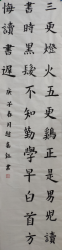 三更燈火五更鷄正是男兒讀
書時黑髮不知勤學早白首方
悔讀書遲
庚子春月書